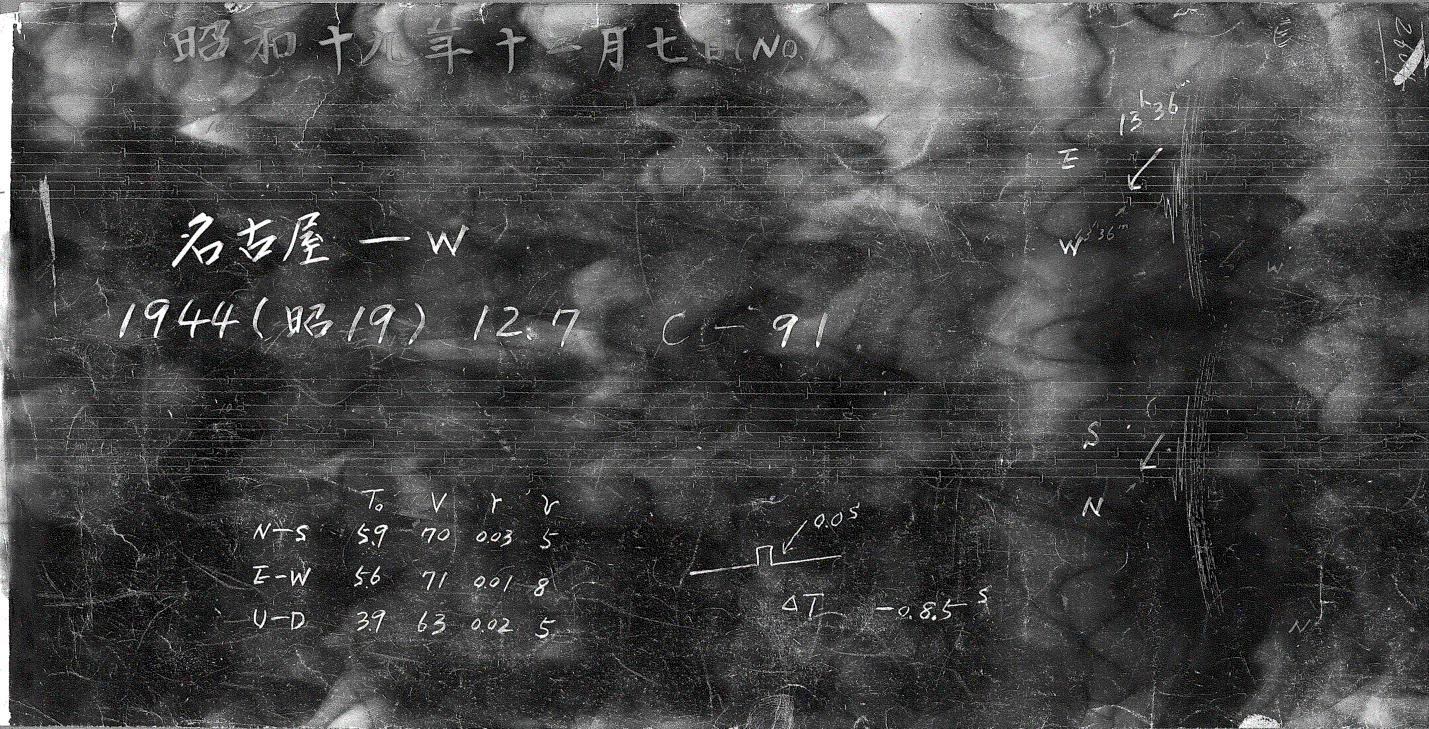 昭和十九年十二月七日(No.1
13h36m
E
名古屋 — W
W
13h36m
W
1944(昭19) 12.7 C — 91
S
T₀ V r
N
N—S 5.9 70 0.03 5
0.0s
E—W 5.6 71 0.01 8
ΔT -0.85s
U—D 3.9 63 0.02 5
N